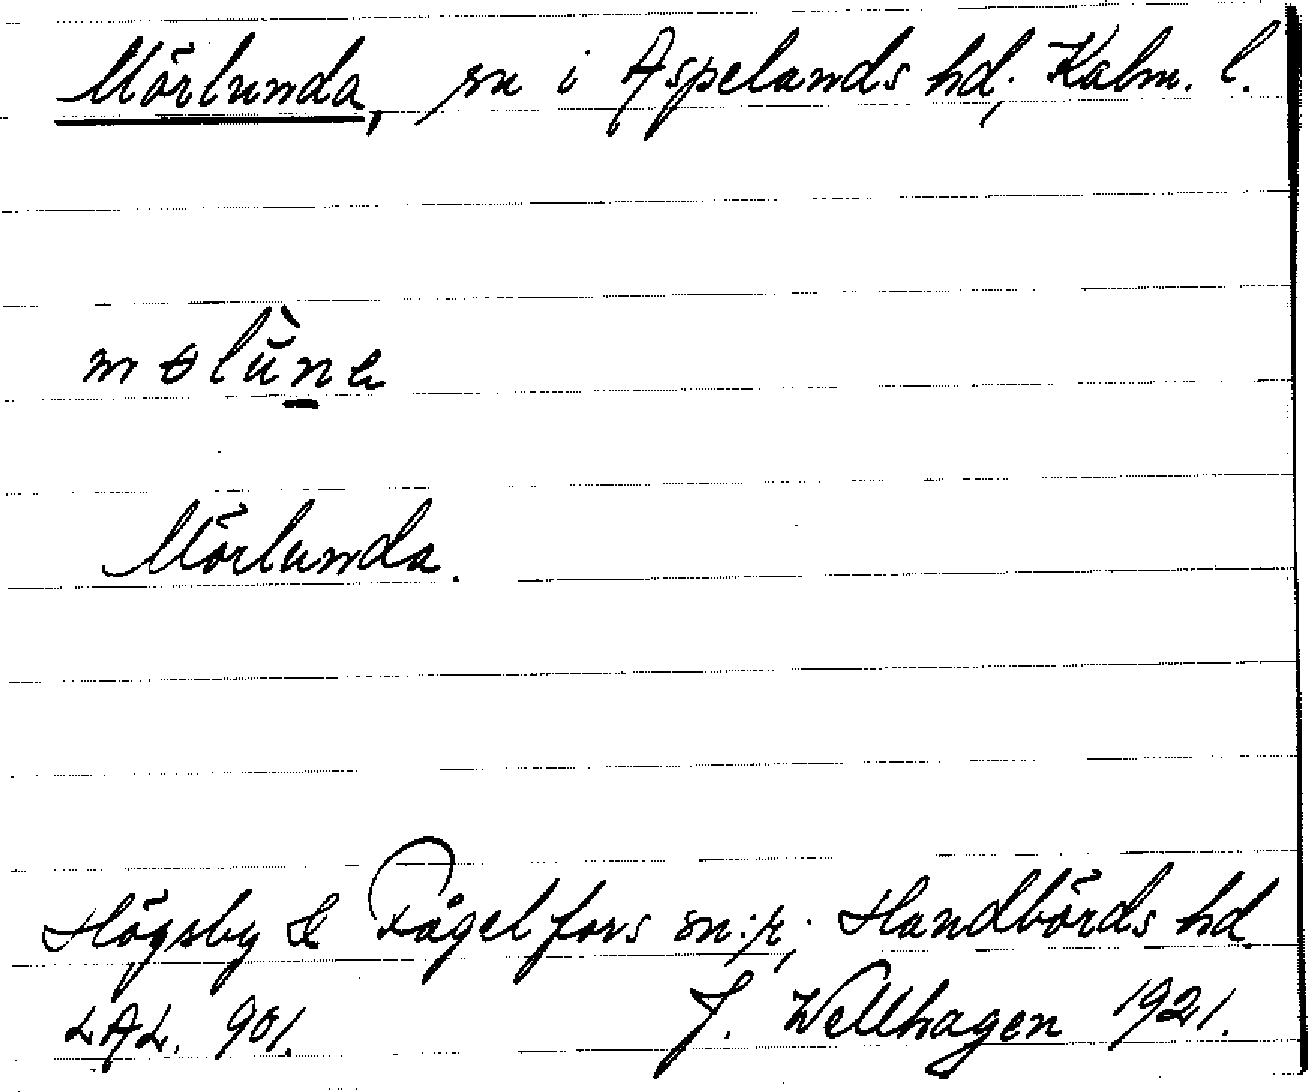 Mörlunda, sn i Aspelands hd, Kalm. l.
Mörlunda.
Högsby & Fågelfors sn:r, Handbörds hd.
LAL. 901. J. Wellhagen 1921.